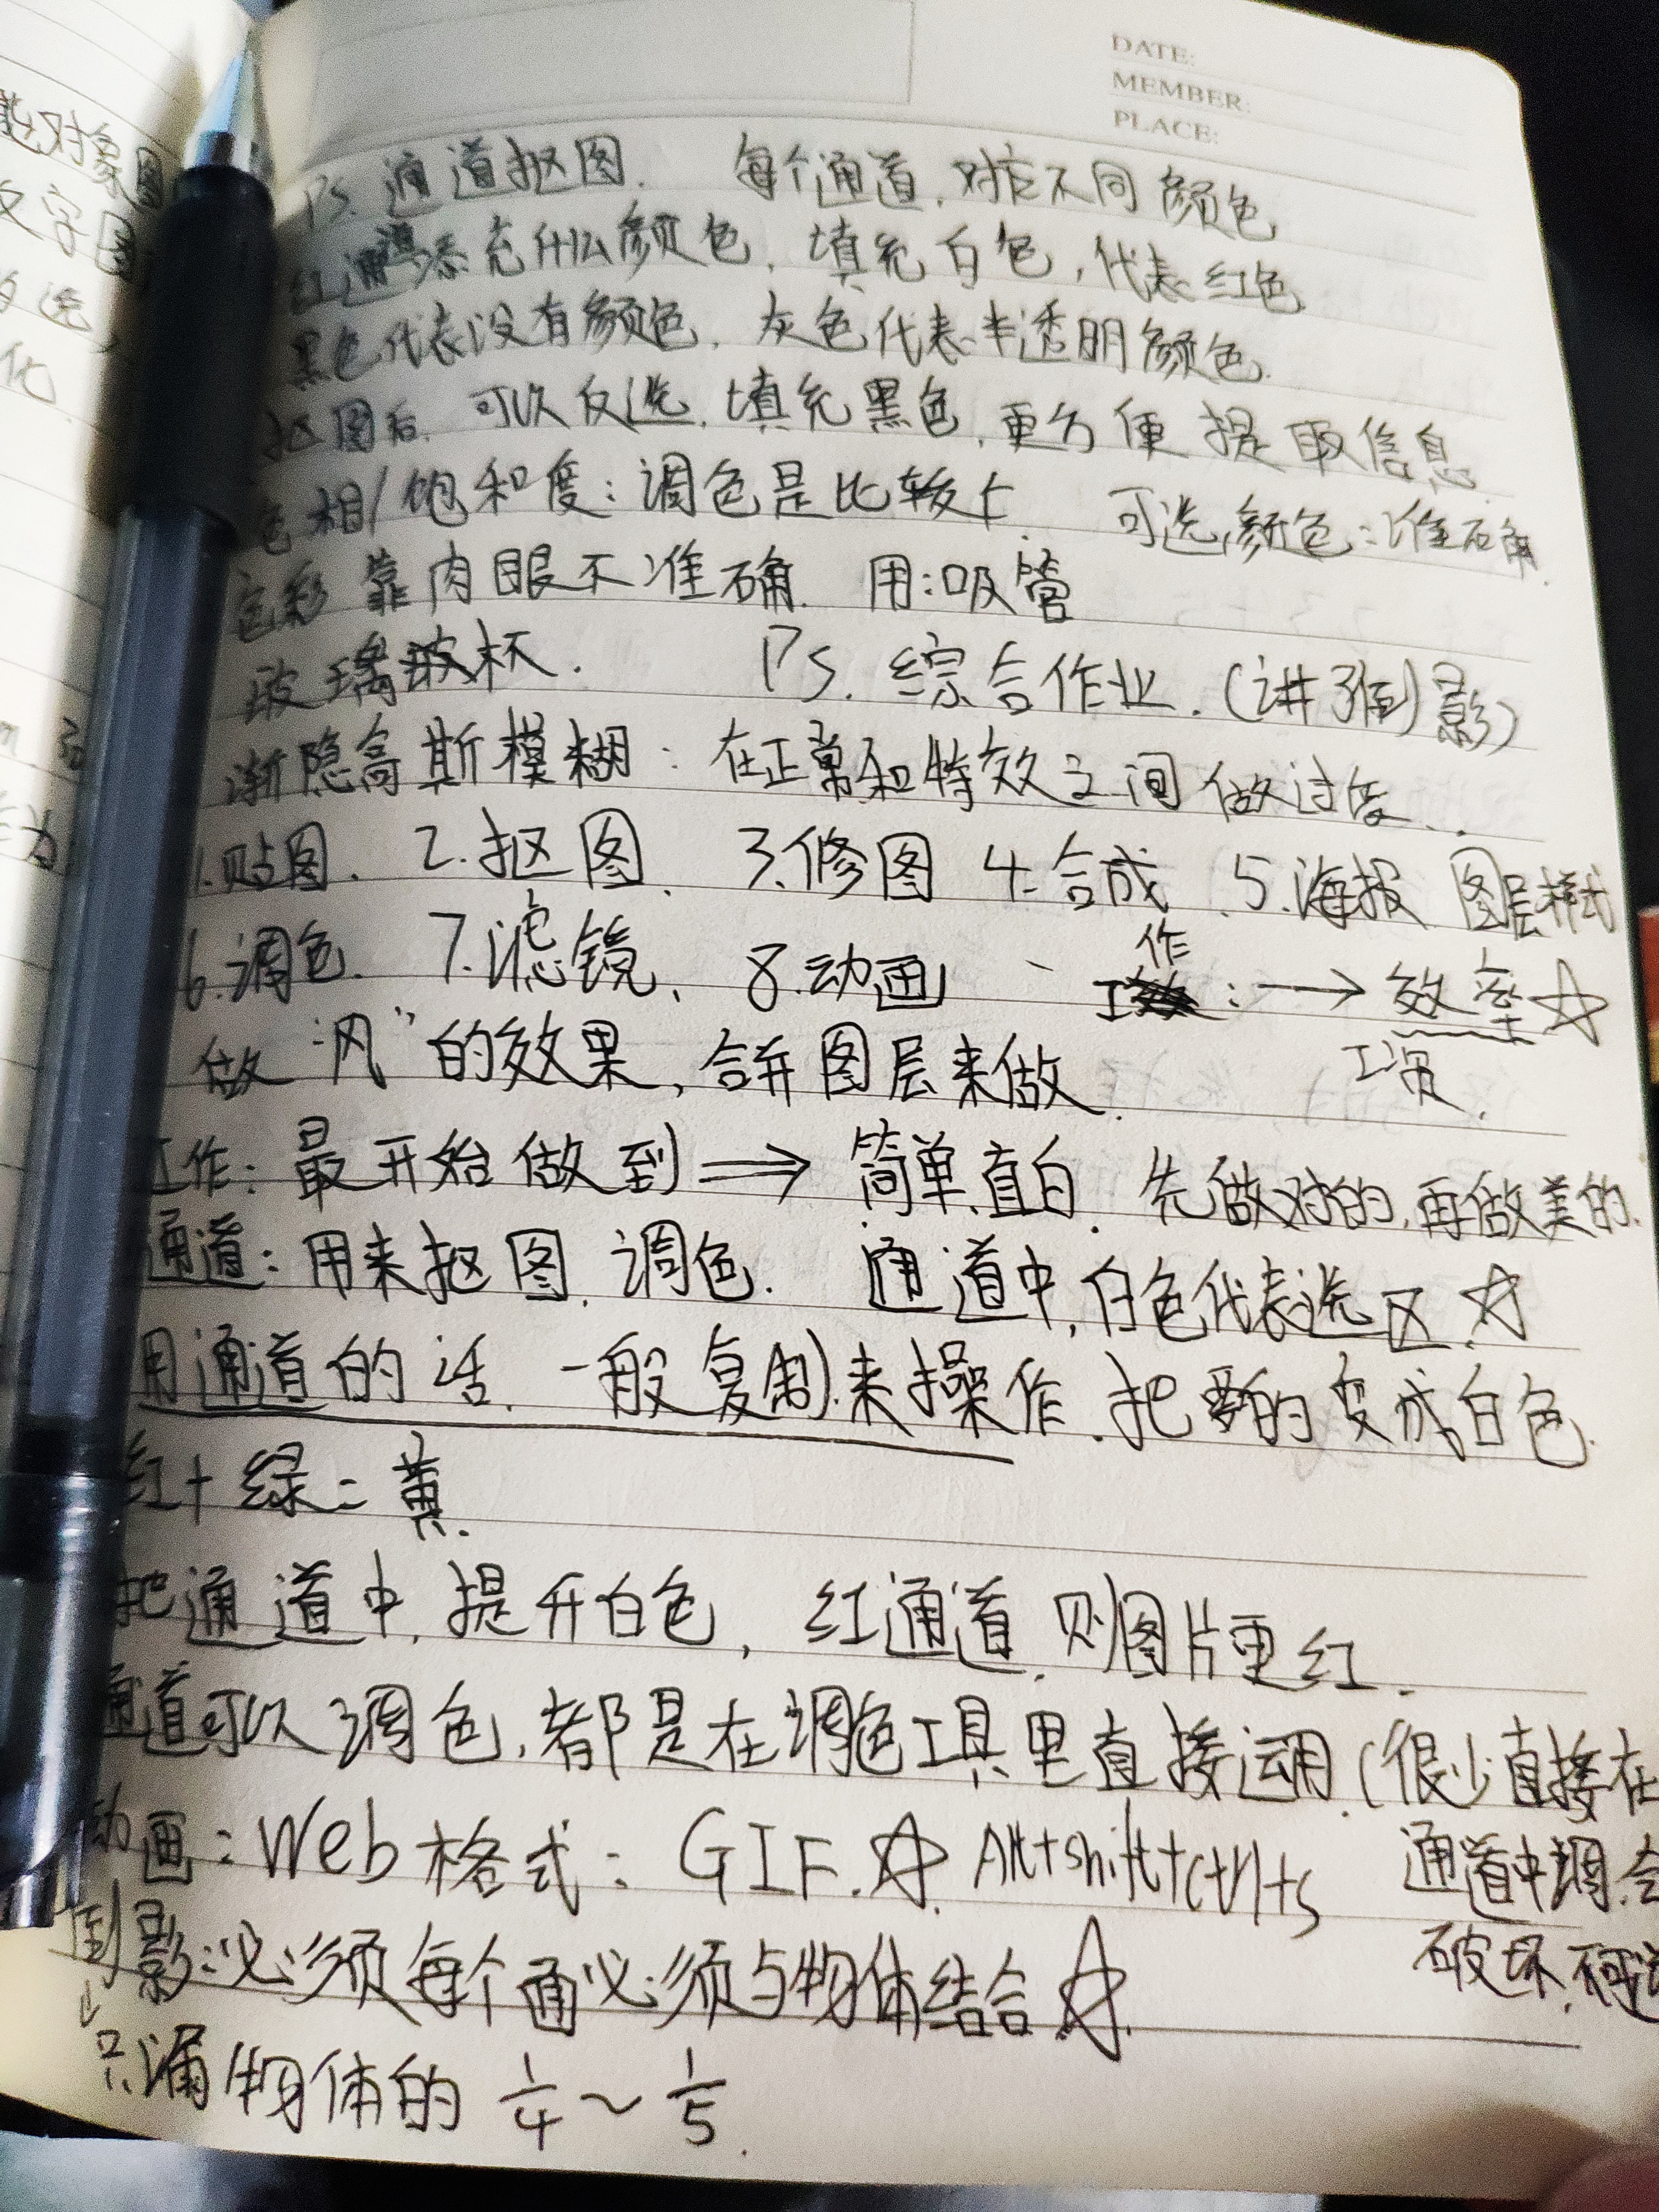 DATE:
MEMBER:
PLACE:
能对象图
文字图
选
化
Ps. 通道抠图. 每个通道,对应不同颜色
红通道添充什么颜色,填充白色,代表红色
黑色代表没有颜色. 灰色代表半透明颜色.
抠图后. 可以反选.填充黑色,更方便提取信息.
色相/饱和度:调色是比较 可选颜色:准确.
色彩靠肉眼不准确. 用:吸管
玻璃玻杯. Ps. 综合作业.(讲到影)
渐隐高斯模糊:在正常和特效之间做过度..
1.贴图. 2.抠图. 3.修图 4.合成. 5.海报 图层样式
6.调色. 7.滤镜、 8.动画、 工作:→效率☆
工资.
做“风”的效果,合并图层来做.
工作:最开始做到⇒简单.直白. 先做对的,再做美的.
通道:用来抠图.调色. 通道中,白色代表选区.☆
用通道的话.一般复制.来操作.把要的变成白色.
红+绿=黄.
把通道中,提升白色,红通道.则图片更红.
通道可以调色,都是在调色工具里直接运用.(很少直接在
通道中调.会
破坏.
动画:Web格式:GIF.☆.Alt+shift+ctrl+s
倒影:必须每个通必须与物体结合☆.
↓只漏物体的 1/4~1/5.